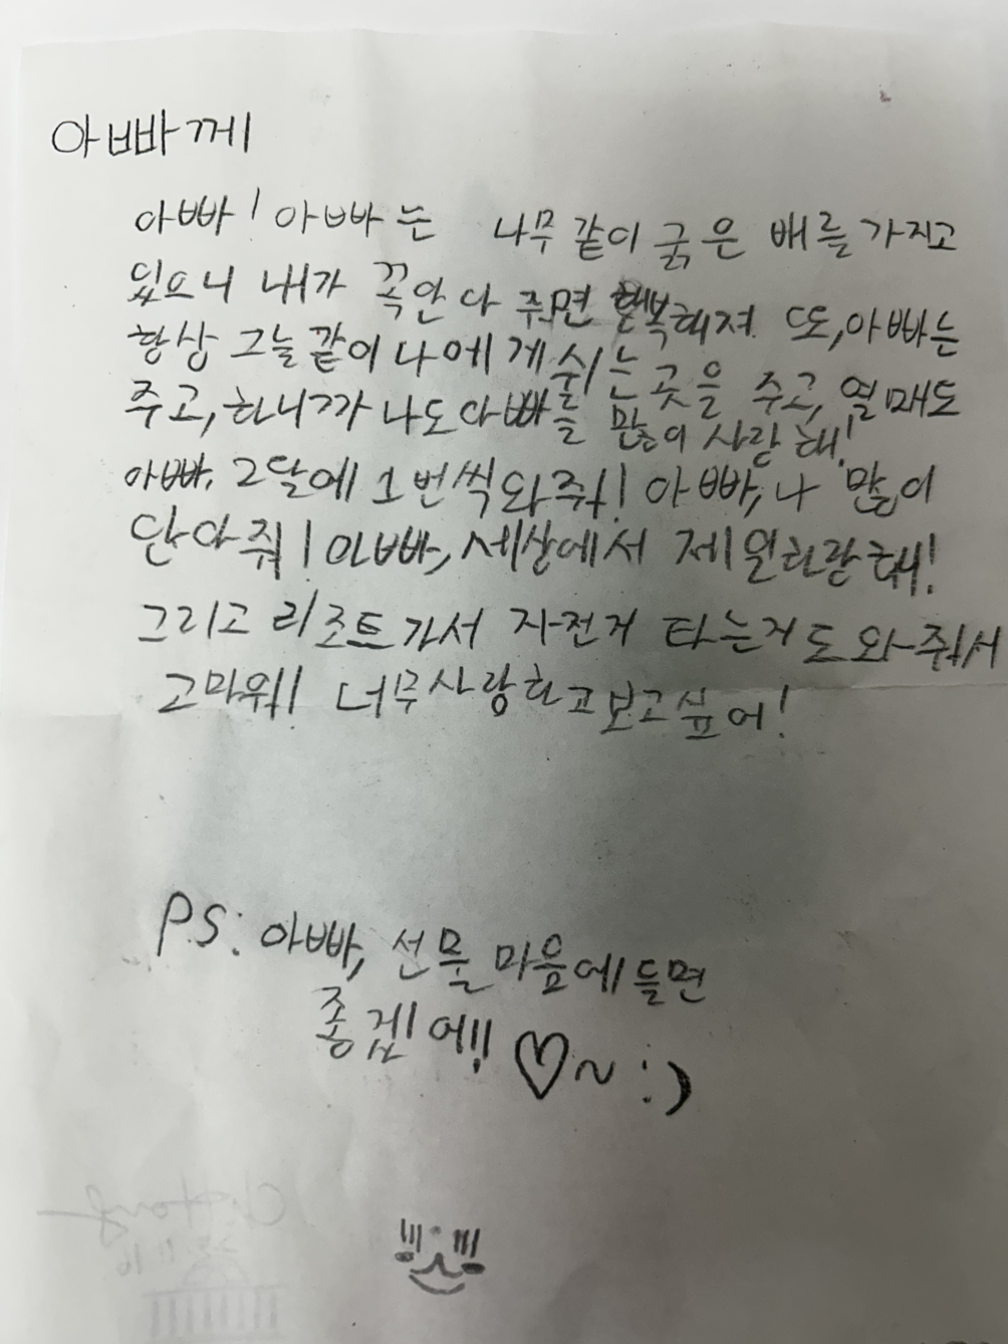 아빠께
아빠! 아빠는 나무같이 굵은 배를 가지고
있으니 내가 꼭안다 주면 행복해져 또, 아빠는
항상 그늘 같이 나에게 쉬는 곳을 주고, 열매도
주고, 하니까 나도 아빠를 많이 사랑해!
아빠, 2달에 1번씩 와줘! 아빠, 나 많이
안아줘! 아빠, 세상에서 제일 사랑해!
그리고 리조트가서 자전거 타는거 도와줘서
고마워! 너무 사랑하고 보고싶어!
P.S: 아빠, 선물 마음에 들면
좋겠어!! ♡~ :)